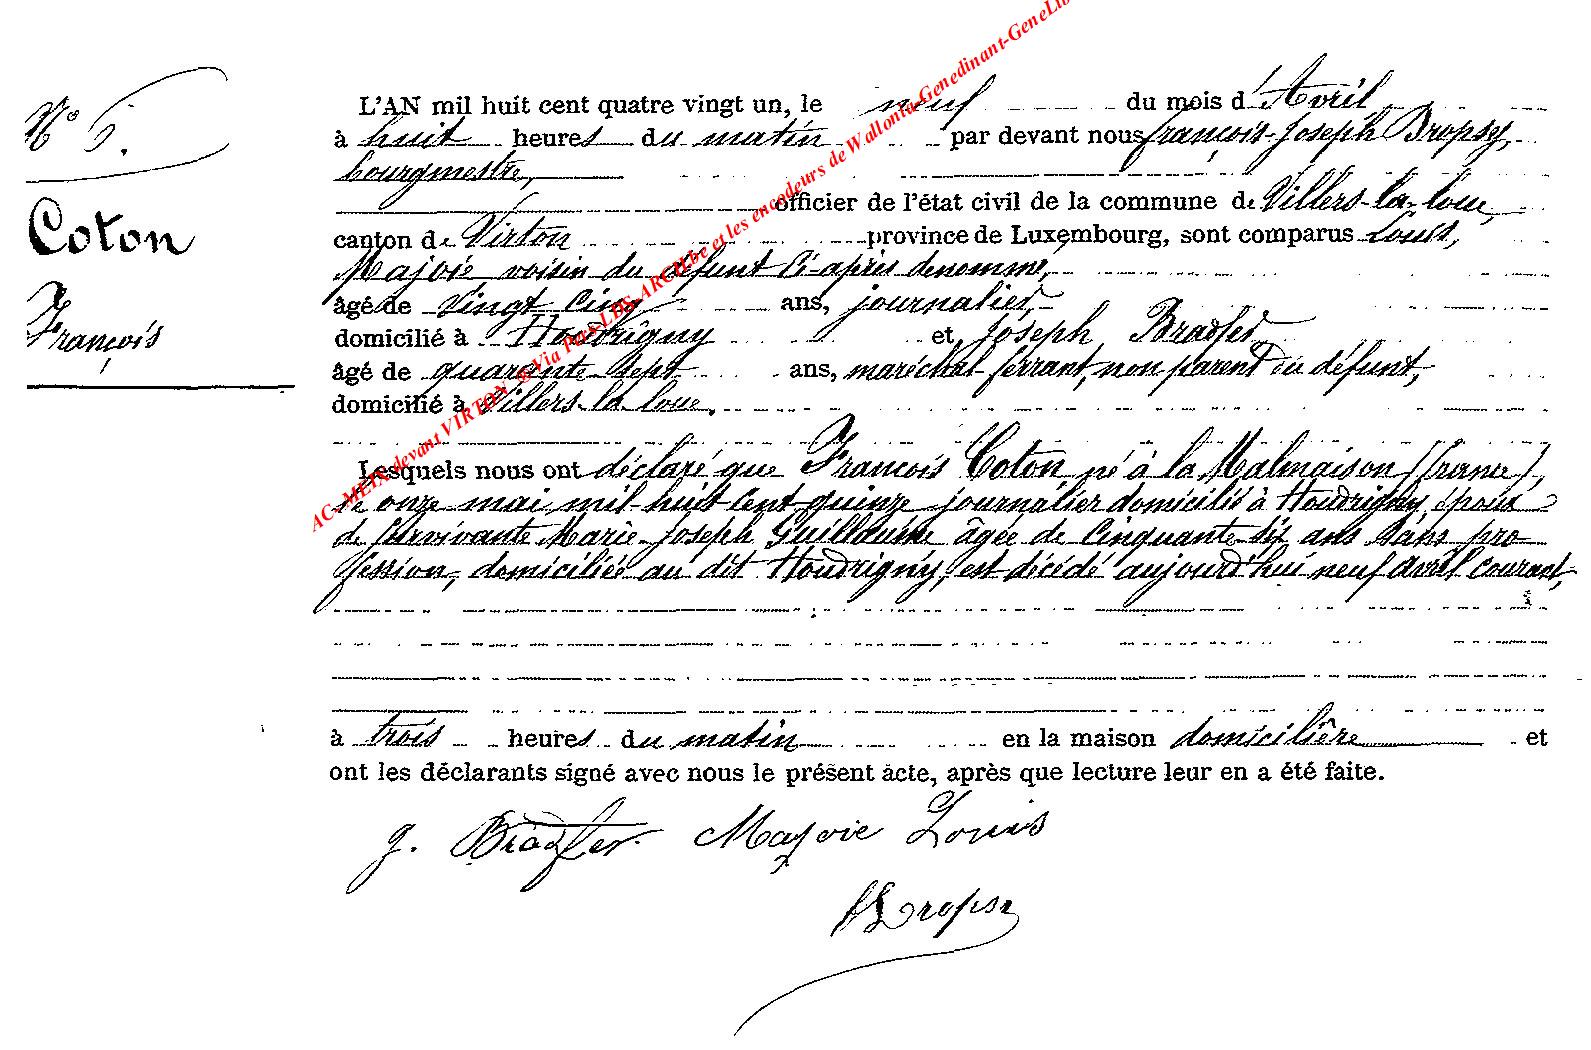 N° 5.
Coton
François
L'AN mil huit cent quatre vingt un, le neuf du mois d'Avril
à huit heures du matin par devant nous françois-Joseph Dropsy,
bourgmestre,
officier de l'état civil de la commune de Villers-la-loue,
canton de Virton province de Luxembourg, sont comparus Louis,
Majoie voisin du défunt ci-après denommé,
âgé de vingt cinq ans, journalier,
domicilié à Houdrigny et Joseph Bradfer
âgé de quarante sept ans, maréchal ferrant, non parent du défunt,
domicilié à Villers-la-loue.
Lesquels nous ont déclaré que François Coton, né à la Malmaison (france),
le onze mai mil-huit cent quinze journalier domicilié à Houdrigny, époux
de survivante Marie-Joseph Guillaume âgée de cinquante-six ans sans pro
fession, domiciliée au dit Houdrigny, est décédé aujourd'hui neuf avril courant,
à trois heures du matin en la maison domicilière et
ont les déclarants signé avec nous le présent acte, après que lecture leur en a été faite.
J. Bradfer Majoie Louis
Dropsy
AC-MEIX devant VIRTON ® Via Part-LDS-ARCH.be et les encodeurs de Wallonia-Genedinant-GeneLib